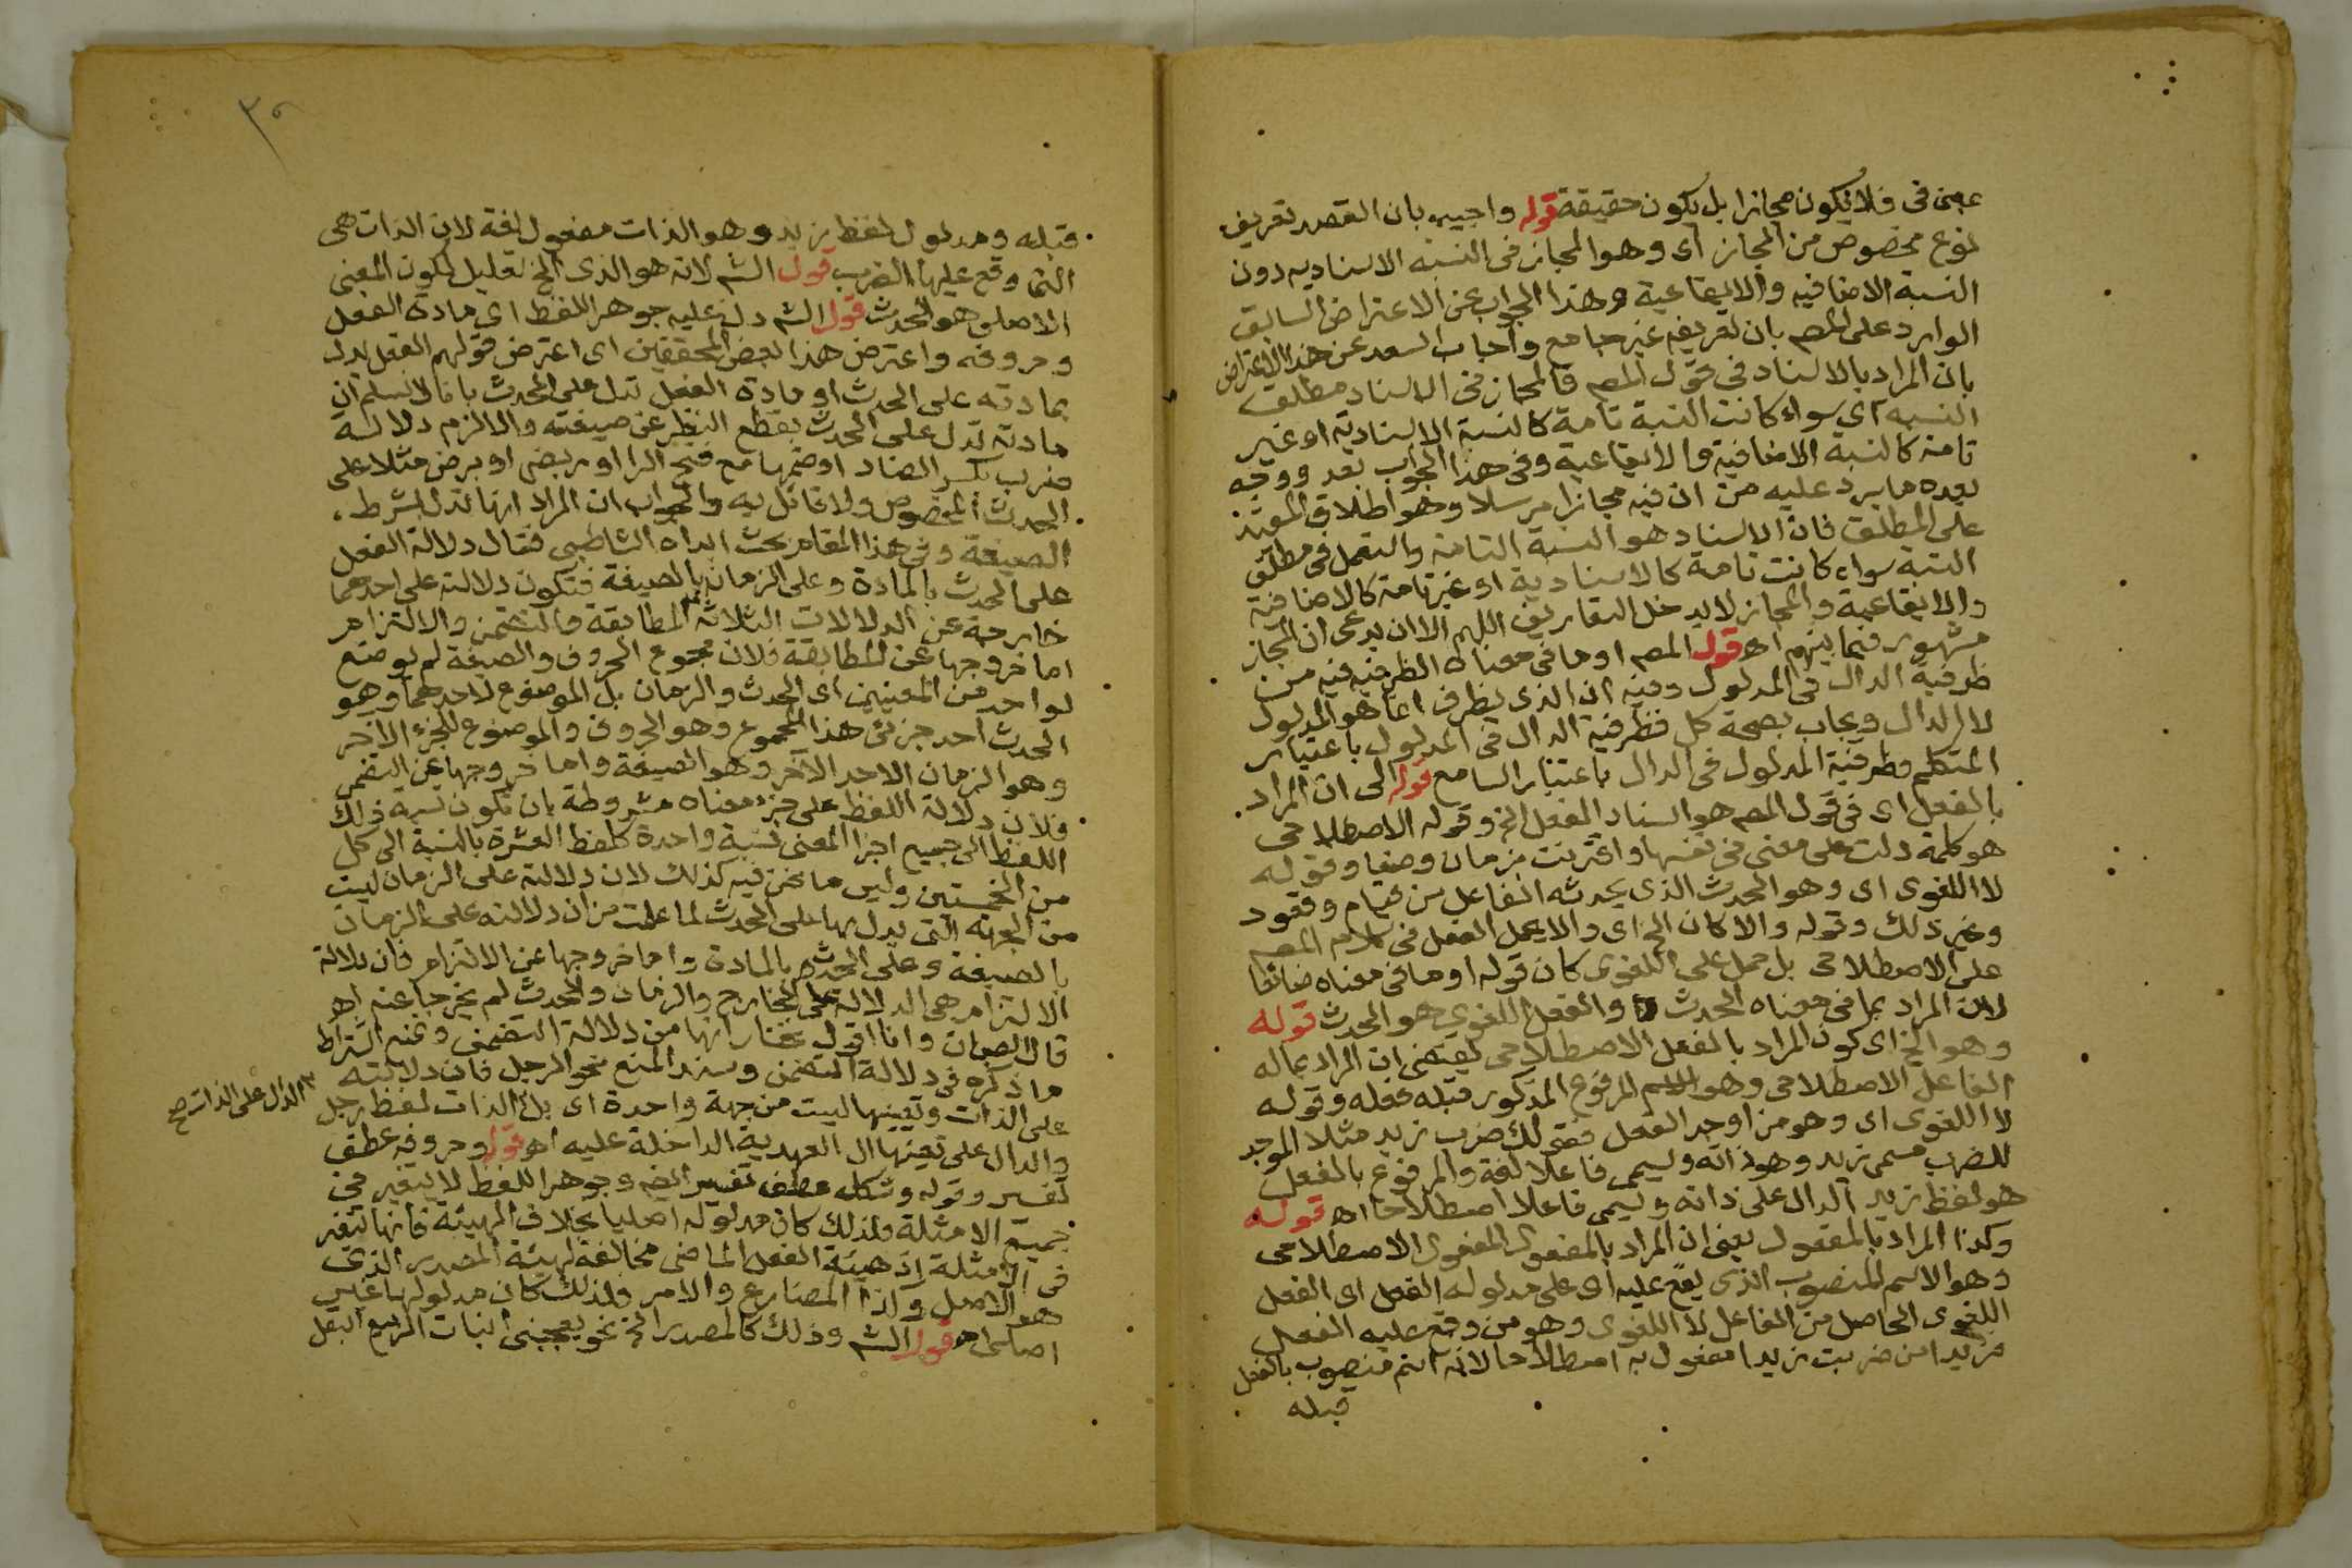 بمعنى فى فلا يكون مجازا بل يكون حقيقة قوله واجيب بان القصد تعريف
نوع مخصوص من المجاز اى وهو المجاز فى النسبه الاسناديه دون
النسبة الاضافيه والايقاعية وهذا الجواب عن الاعتراض السابق
الوارد على المصر بان تعريفه غير جامع واجاب السعد عن هذا الاعتراض
بان المراد بالاسناد فى قول المصر فالمجاز فى الاسناد مطلق
النسبه اى سواء كانت النسبة تامة كالنسبة الاسنادية او غير
تامة كالنسبة الاضافية والايقاعية وفى هذا الجواب بعد ووجه
بعده ما يرد عليه من ان فيه مجازا مرسلا وهو اطلاق المقيد
على المطلق فان الاسناد هو النسبة التامة واستعمل فى مطلق
النسبة سواء كانت تامة كالاسنادية او غير تامة كالاضافية
والايقاعية والمجاز لا يدخل التعاريف اللهم الا ان يدعى ان المجاز
مشهور فيما بينهم اه قول المصر او ما فى معناه الظرفيه فيه من
ظرفية الدال فى المدلول وفيه ان الذى يظرف انما هو المدلول
لا الدال ويجاب بصحة كل فظرفية الدال فى المدلول باعتبار
المتكلم وظرفية المدلول فى الدال باعتبار السامع قوله الى ان المراد
بالفعل اى فى قول المصر هو اسناد الفعل الخ وقوله الاصطلاحى
هو كلمة دلت على معنى فى نفسها واقترنت بزمان وضعا وقوله
لا اللغوى اى وهو الحدث الذى يحدثه الفاعل من قيام وقعود
وغير ذلك وقوله والا كان الخ اى والا يحمل الفعل فى كلام المصر
على الاصطلاحى بل حمل على اللغوى كان قوله او ما فى معناه ضائعا
لان المراد بما فى معناه الحدث والفعل اللغوى هو الحدث قوله
وهو الخ اى كون المراد بالفعل الاصطلاحى يقتضى ان المراد بماله
الفاعل الاصطلاحى وهو الاسم المرفوع المذكور قبله فعله وقوله
لا اللغوى اى وهو من اوجد الفعل فقولك ضرب زيد مثلا الموجد
للضرب مسمى زيد وهو ذاته ويسمى فاعلا لغة والمرفوع بالفعل
هو لفظ زيد الدال على ذاته ويسمى فاعلا اصطلاحا اه قوله
وكذا المراد بالمفعول يعنى ان المراد بالمفعول المفعول الاصطلاحى
وهو الاسم المنصوب الذى يقع عليه اى على مدلوله الفعل اى الفعل
اللغوى الحاصل من الفاعل لا اللغوى وهو من وقع عليه الفعل
فزيدا من ضربت زيدا مفعول به اصطلاحا لانه اسم منصوب بالفعل
قبله
قبله ومدلول لفظ زيد وهو الذات مفعول لغة لان الذات هى
التى وقع عليها الضرب قول الشر لانه هو الذى الخ تعليل لكون المعنى
الاصلى هو الحدث قول الشر دل عليه جوهر اللفظ اى مادة الفعل
وحروفه واعترض هذا بعض المحققين اى اعترض قولهم الفعل يدل
بمادته على الحدث او مادة الفعل تدل على الحدث بانا لا نسلم ان
مادته تدل على الحدث بقطع النظر عن صيغته والا لزم دلالة
ضرب بكسر الضاد او ضمها مع فتح الرا او ربض او برض مثلا على
الحدث المخصوص ولا قائل به والجواب ان المراد انها تدل بشرط
الصيغة وفى هذا المقام بحث ابداه الشاطبى فقال دلالة الفعل
على الحدث بالمادة وعلى الزمان بالصيغة فتكون دلالته على احدهما
خارجة عن الدلالات الثلاثة المطابقة والتضمن والالتزام
اما خروجها عن المطابقة فلان مجموع الحروف والصيغة لم يوضع
لواحد من المعنيين اى الحدث والزمان بل الموضوع لاحدهما وهو
الحدث احد جزئى هذا المجموع وهو الحروف والموضوع للجزء الاخر
وهو الزمان الاحد الآخر وهو الصيغة واما خروجها عن التضمن
فلان دلالة اللفظ على جزء معناه مشروطة بان تكون نسبة ذلك
اللفظ الى جميع اجزا المعنى نسبة واحدة كلفظ العشرة بالنسبة الى كل
من الخمستين وليس ما نحن فيه كذلك لان دلالته على الزمان ليست
من الجهة التى يدل بها على الحدث لما علمت من ان دلالته على الزمان
بالصيغة وعلى الحدث بالمادة واما خروجها عن الالتزام فان دلالة
الالتزام هى الدلالة على الخارج والزمان والحدث لم يخرجا عنه اه
قال الصبان وانا اقول نختار انها من دلالة التضمن ونمنع اشتراط
ما ذكره فى دلالة التضمن وسند المنع نحو الرجل فان دلالته
على الذات وتعينها ليست من جهة واحدة اى بل الذات لفظ رجل
الدال على الذات صح
والدال على تعينها ال العهدية الداخلة عليه اه قوله وحروفه عطف
تفسير وقوله وشكله عطف تفسير ايضه وجوهر اللفظ لا يتغير فى
جميع الامثلة فلذلك كان مدلوله اصليا بخلاف الهيئة فانها تتغير
فى الامثلة اذ هيئة الفعل الماضى مخالفة لهيئة المصدر الذى
هو الاصل وكذا المضارع والامر فلذلك كان مدلولها غير
اصلى اه قول الشر وذلك كالمصدر الخ نحو يعجبنى انبات الربيع البقل